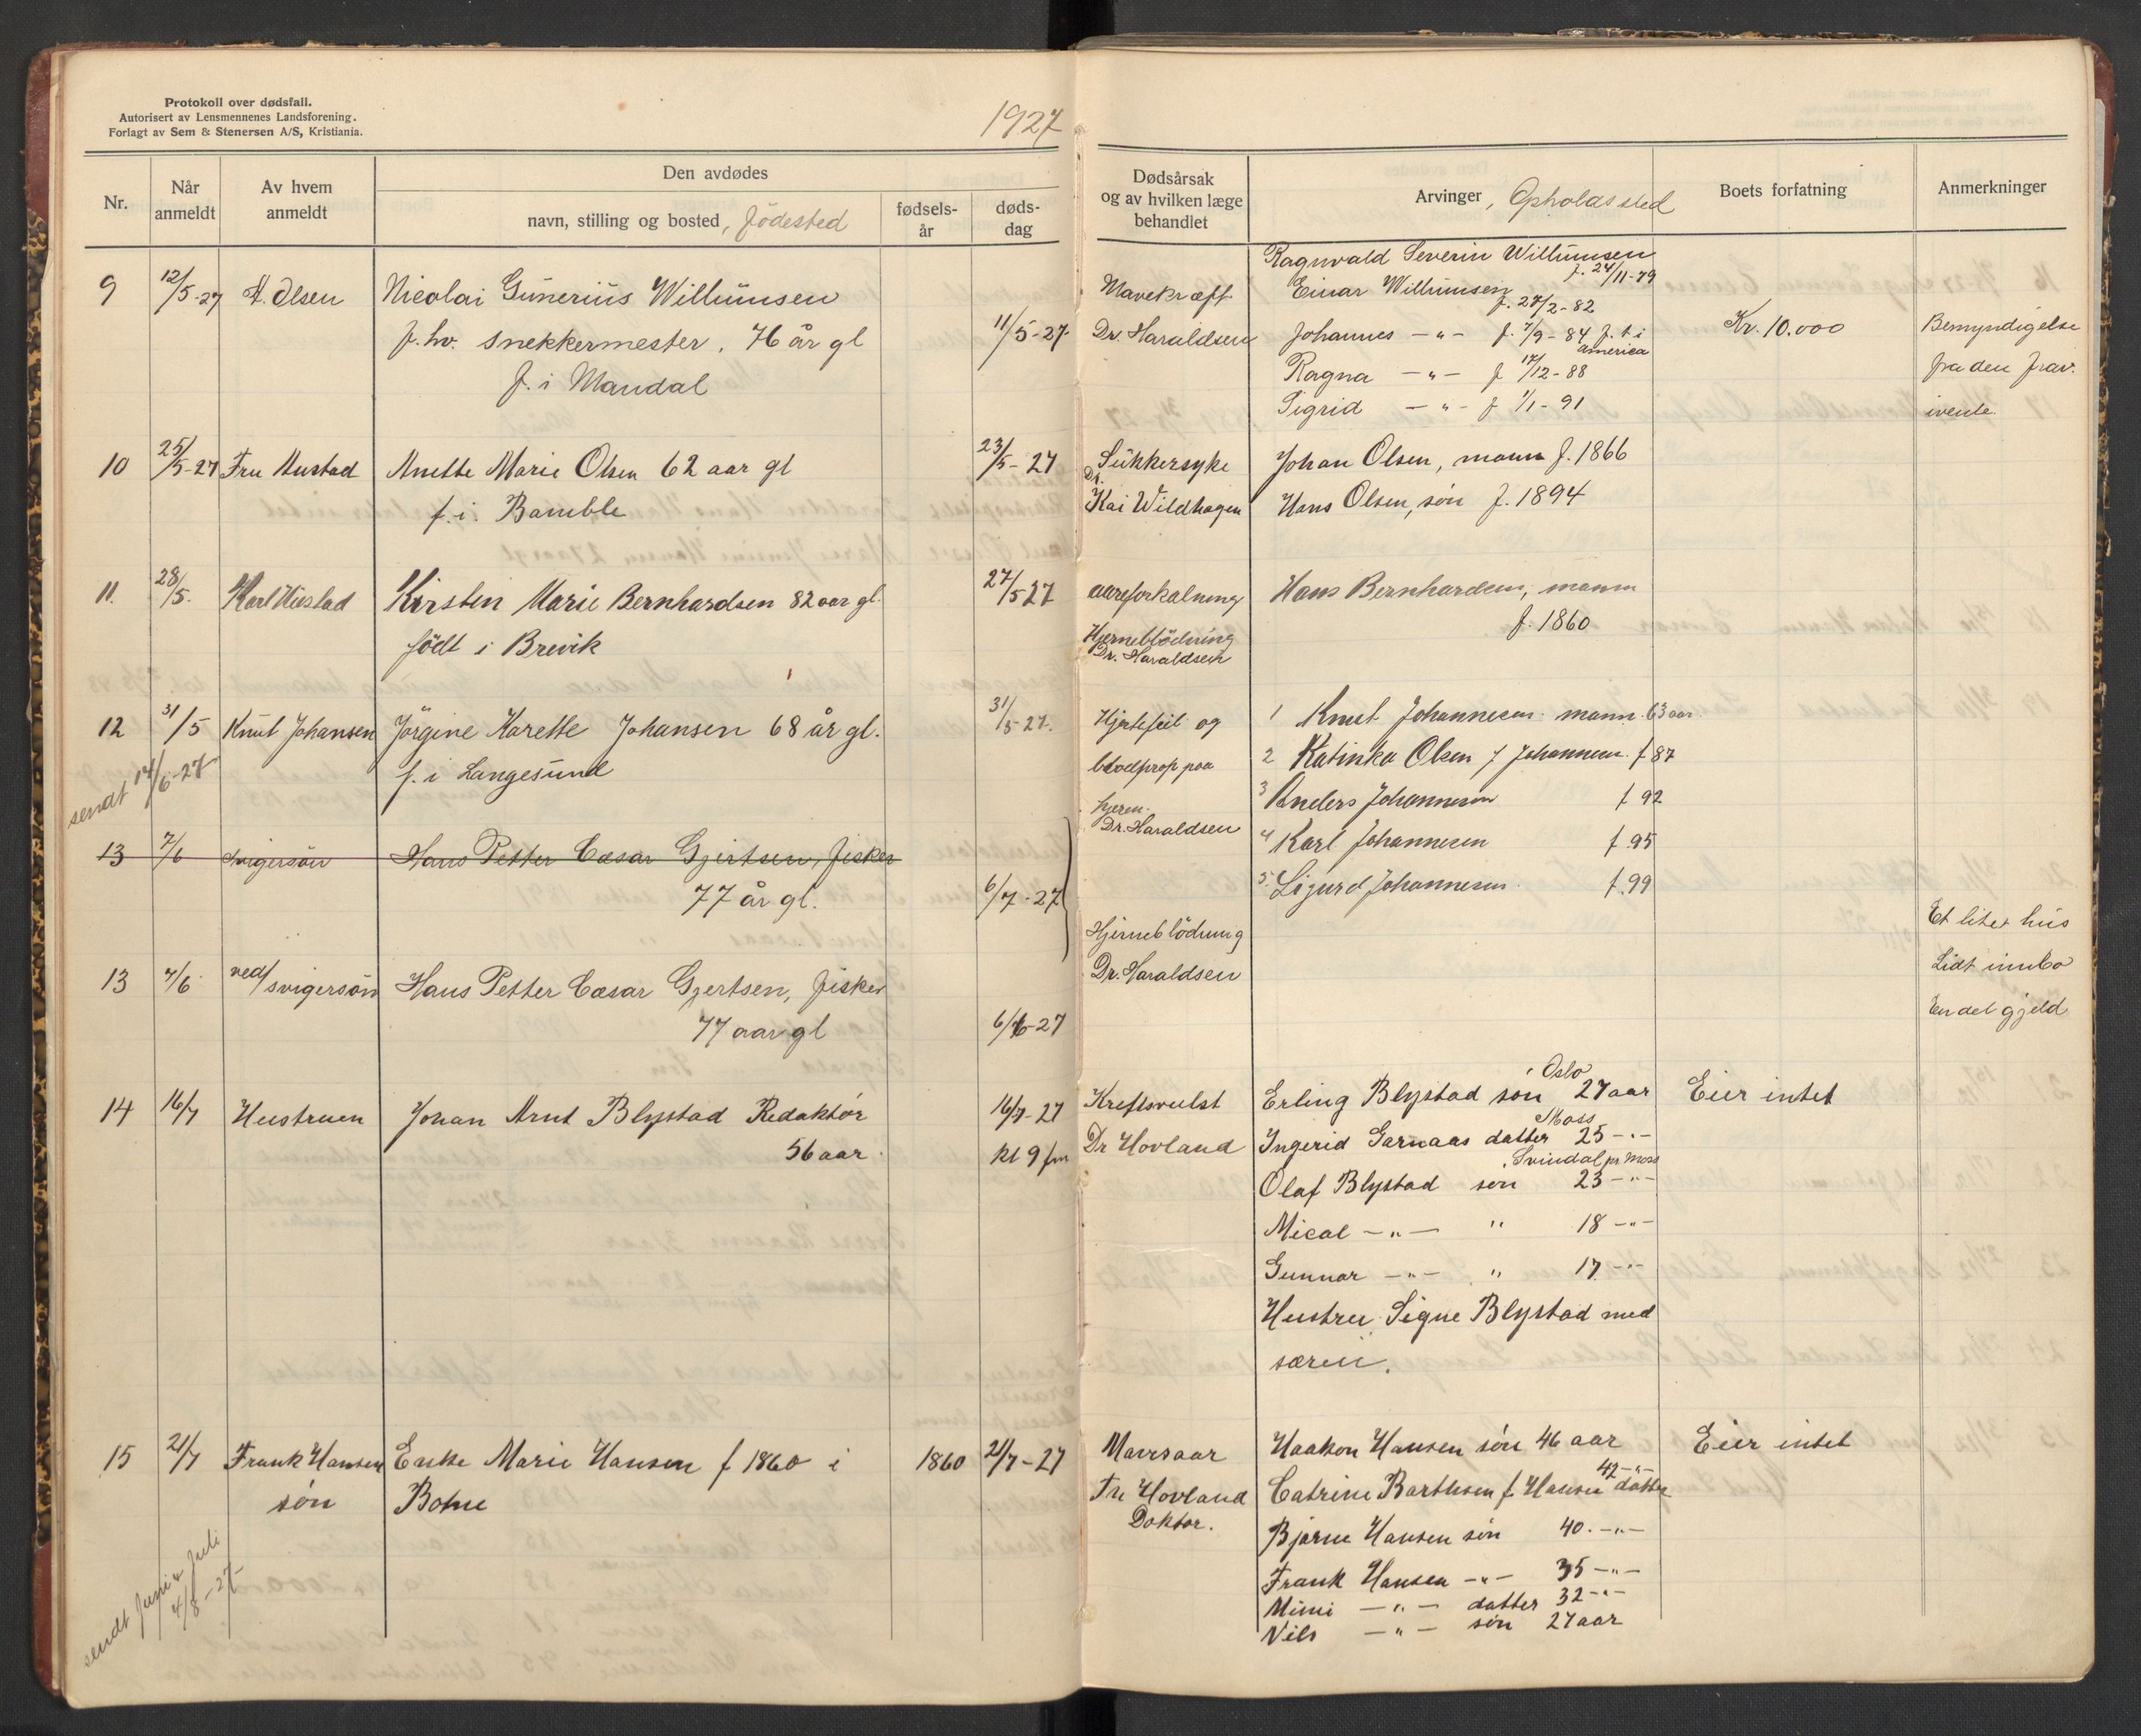 Protokoll over dødsfall.
Autorisert av Lensmennenes Landsforening.
Forlagt av Sem & Stenersen A/S, Kristiania.
1927
Nr.
Når anmeldt
Av hvem anmeldt
Den avdødes
navn, stilling og bosted, födested
fødsels-år
døds-dag
Dødsårsak og av hvilken læge behandlet
Arvinger, Opholdssted
Boets forfatning
Anmerkninger
9 12/5-27 A. Olsen Nicolai Gunerius Willumsen
f.hv. snekkermester. 76 år gl 11/5-27
f. i Mandal
Mavekræft
Dr. Haraldsen
Ragnvald Severin Willumsen
f. 24/11-79
Einar Willumsen
f. 27/2-82
Johannes -"- f. 7/9-84 f. t. i
america
Ragna -"- f 17/12-88
Sigrid -"- f 1/1-91
Kr. 10.000
Bemyndigelse
fra den frav.
10 25/5-27 Fru Mustad Anette Marie Olsen 62 aar gl 23/5-27
f. i. Bamble
Sukkersyke
Dr.
Kai Wildhagen
Johan Olsen, mann f. 1866
Hans Olsen, sön f. 1894
11. 28/5. Karl Kirsten Marie Bernhardsen 82 aar gl. 27/5 27
födt i Brevik
aareforkalkning
Hjerneblödning
Dr. Haraldsen
Hans Bernhardsen, mann
f. 1860
12 31/5 Knut Johansen Jörgine Karette Johansen 68 år gl. 31/5-27.
f. i Langesund
sendt 14/6-27
Hjertefeil og
blodprop paa
hjern.
Dr. Haraldsen
1 Knut Johannesen mann 63 aar
2 Katinka Olsen f Johannesen f 87
3 Anders Johannesen f 92
4 Karl Johannesen f 95
5. Sigurd Johannesen f. 99
13 7/6 svigersön Hans Petter Cæsar Gjertsen, fisker
77 år gl. 6/7-27
13 7/6 ved svigersön Hans Petter Cæsar Gjertsen, fisker
77 aar gl 6/6-27
Hjerneblödning
Dr. Haraldsen
Et litet hus
Lidt innbo
En del gjeld
14 16/7 Hustruen Johan Arnt Blystad Redaktör 16/7-27
56 aar. kl 9 fm
Kreftsvulst
Dr Hovland
Erling Blystad sön Oslo 27 aar
Ingerid Garnaas datter Moss 25 -"-
Olaf Blystad sön Svindal pr Moss 23 -"-
Mical -"- " 18 -"-
Gunnar -"- " 17 -"-
Hustru Signe Blystad med
særeie.
Eier intet
15 21/7 Frank Hansen Enke Marie Hansen f 1860 i 1860 21/7-27
sön
Mavesaar
Hovland
Doktor.
Haakon Hansen sön 46 aar
42 -"-
Catrine Barthsen f. Hansen datter
Bjarne Hansen sön 40. -"-
Frank Hansen -"- 35 -"-
Mimi -"- datter 32 -"-
Nils -"- sön 27 aar
Eier intet
sendt Juni & Juli
4/8-27-